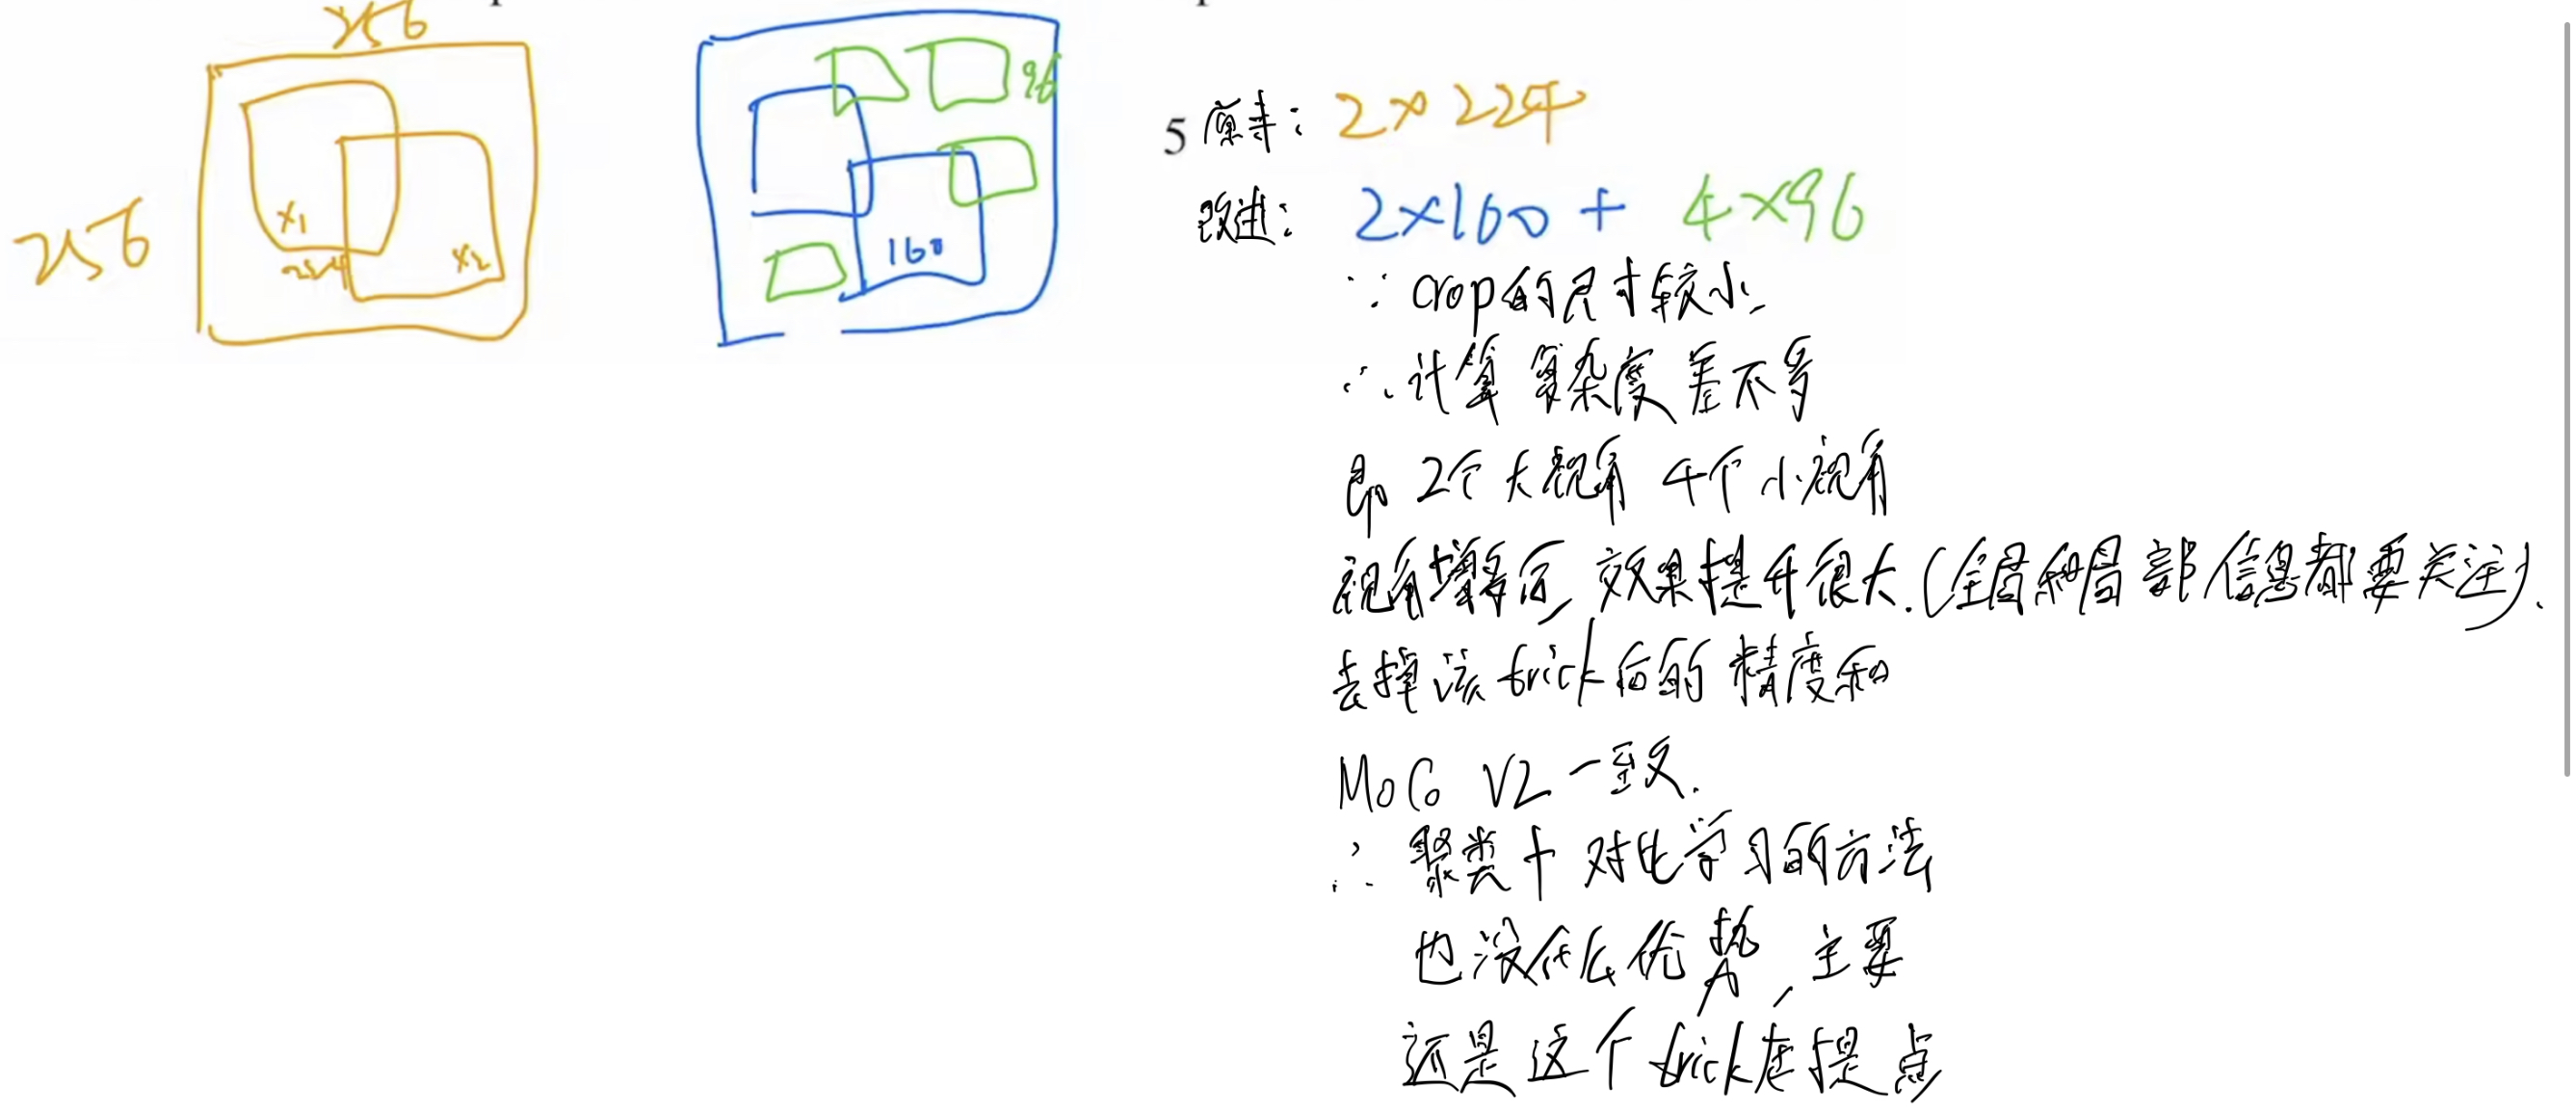 256
256
x1
224
x2
96
160
5 原来: 2×224
改进: 2×160 + 4×96
∵ crop的尺寸较小
∴ 计算复杂度差不多
即 2个大视角 4个小视角
视角增多后, 效果提升很大.(全局和局部信息都要关注).
去掉该trick后的精度和
MoCo V2 一致.
∴ 聚类+对比学习的方法
也没什么优势, 主要
还是这个trick在提点